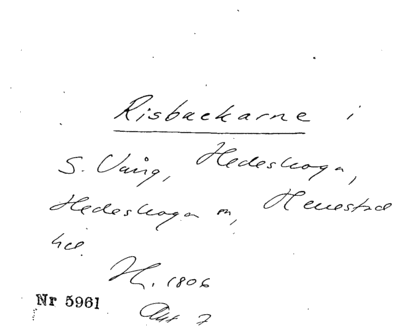 Risbackarne i
S. Vång, Hedeskoga,
Hedeskoga m, Herrestad
hd.
H. 1806
Akt 7
Nr 5961